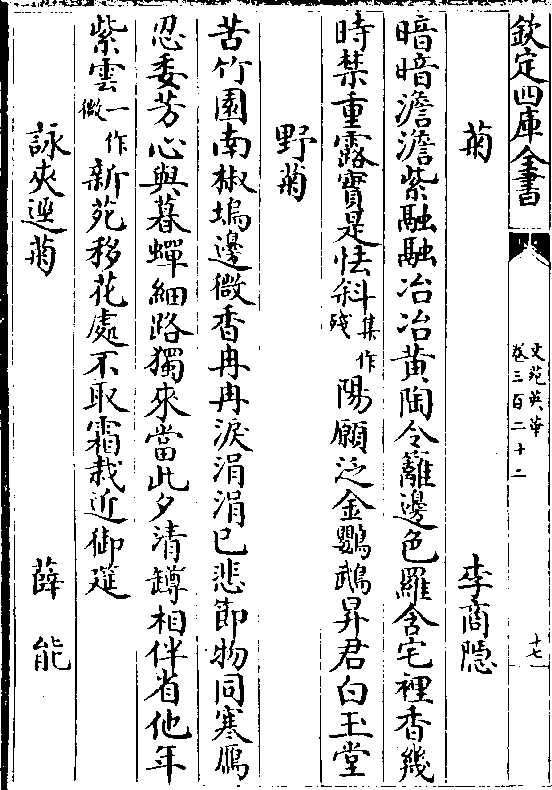 欽定四庫全書
文苑英華
卷三百二十二
十七
菊 李商隱
暗暗澹澹紫融融冶冶黃陶令籬邊色羅含宅裡香幾
時禁重露實是怯斜集作殘陽願泛金鸚鵡昇君白玉堂
野菊
苦竹園南椒塢邊微香冉冉淚涓涓已悲節物同寒鴈
忍委芳心與暮蟬細路獨來當此夕清罇相伴省他年
紫雲一作微新苑移花處不取霜栽近御筵
詠夾逕菊 薛能